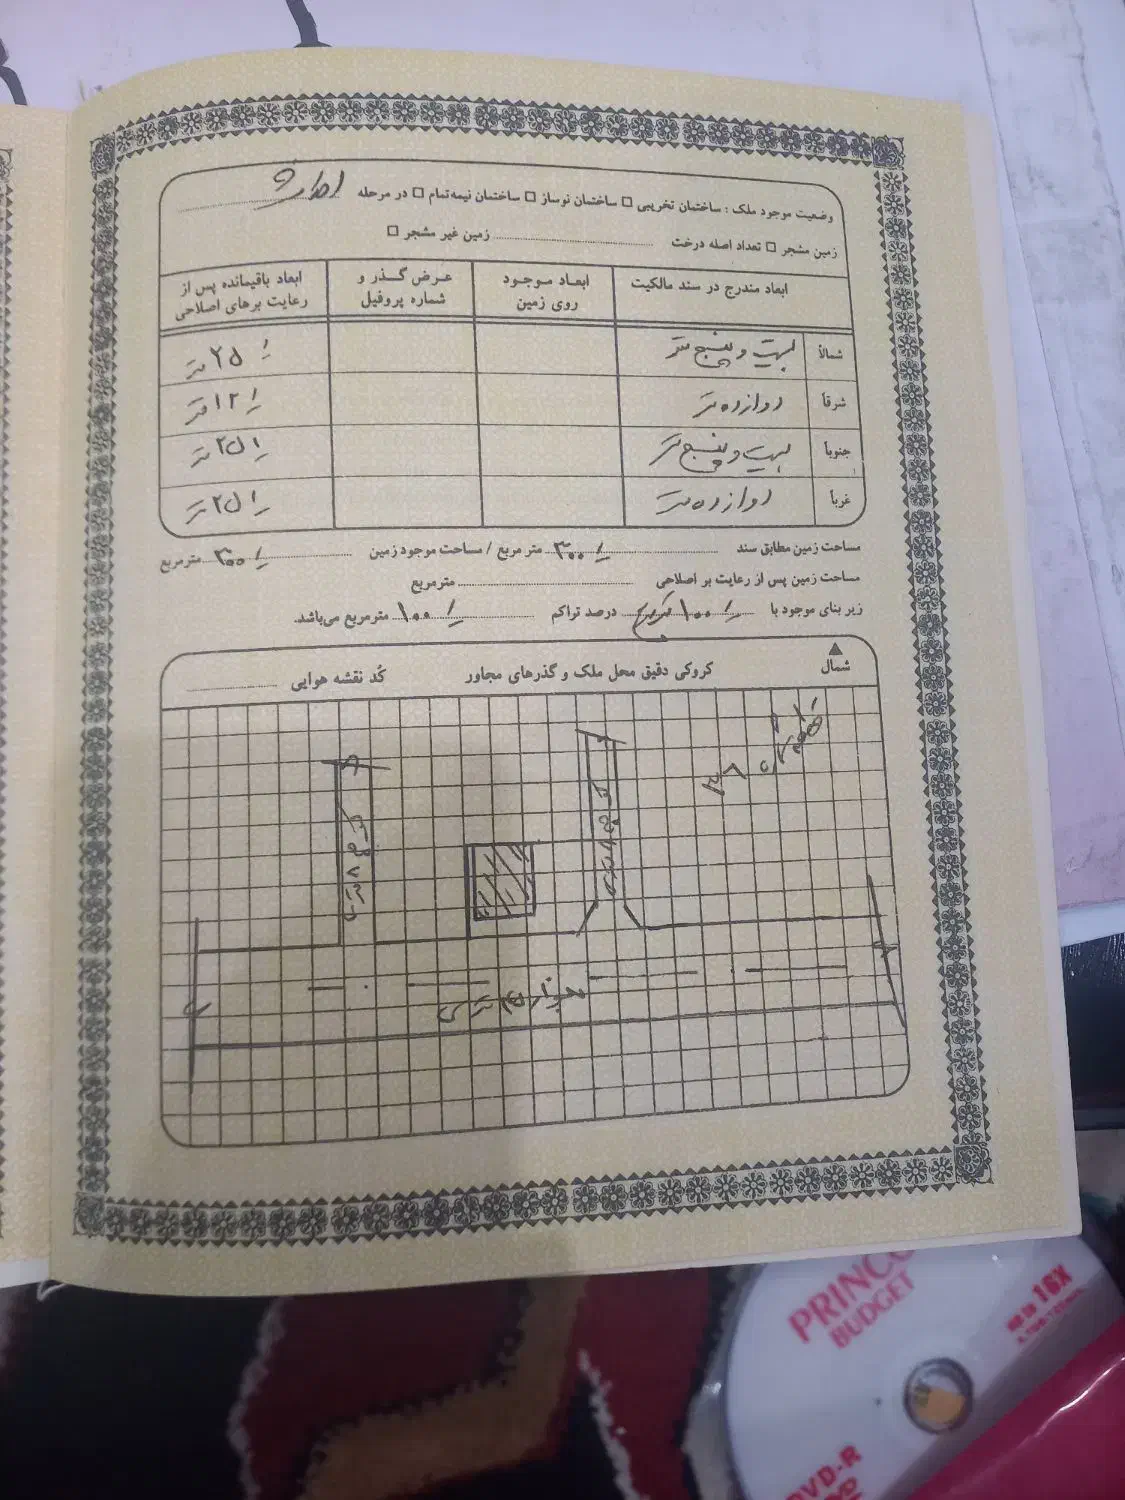 وضعیت موجود ملک : ساختمان تخریبی □ ساختمان نوساز □ ساختمان نیمه‌تمام □ در مرحله
زمین مشجر □ تعداد اصله درخت زمین غیر مشجر □
ابعاد مندرج در سند مالکیت ابعاد موجود روی زمین عرض گذر و شماره پروفیل ابعاد باقیمانده پس از رعایت برهای اصلاحی
شمالاً بیست و پنج متر ۲۵ متر
شرقاً دوازده متر ۱۲ متر
جنوباً بیست و پنج متر ۲۵ متر
غرباً دوازده متر
مساحت زمین مطابق سند ۳۰۰ متر مربع / مساحت موجود زمین ۳۰۰ مترمربع
مساحت زمین پس از رعایت بر اصلاحی مترمربع
زیر بنای موجود با ۱۰۰ درصد تراکم ۱۰۰ مترمربع می‌باشد.
شمال
کروکی دقیق محل ملک و گذرهای مجاور کُد نقشه هوایی
کوچه ۸ متری
کوچه ۸ متری
PRINCO
BUDGET
up to 16X
DVD-R